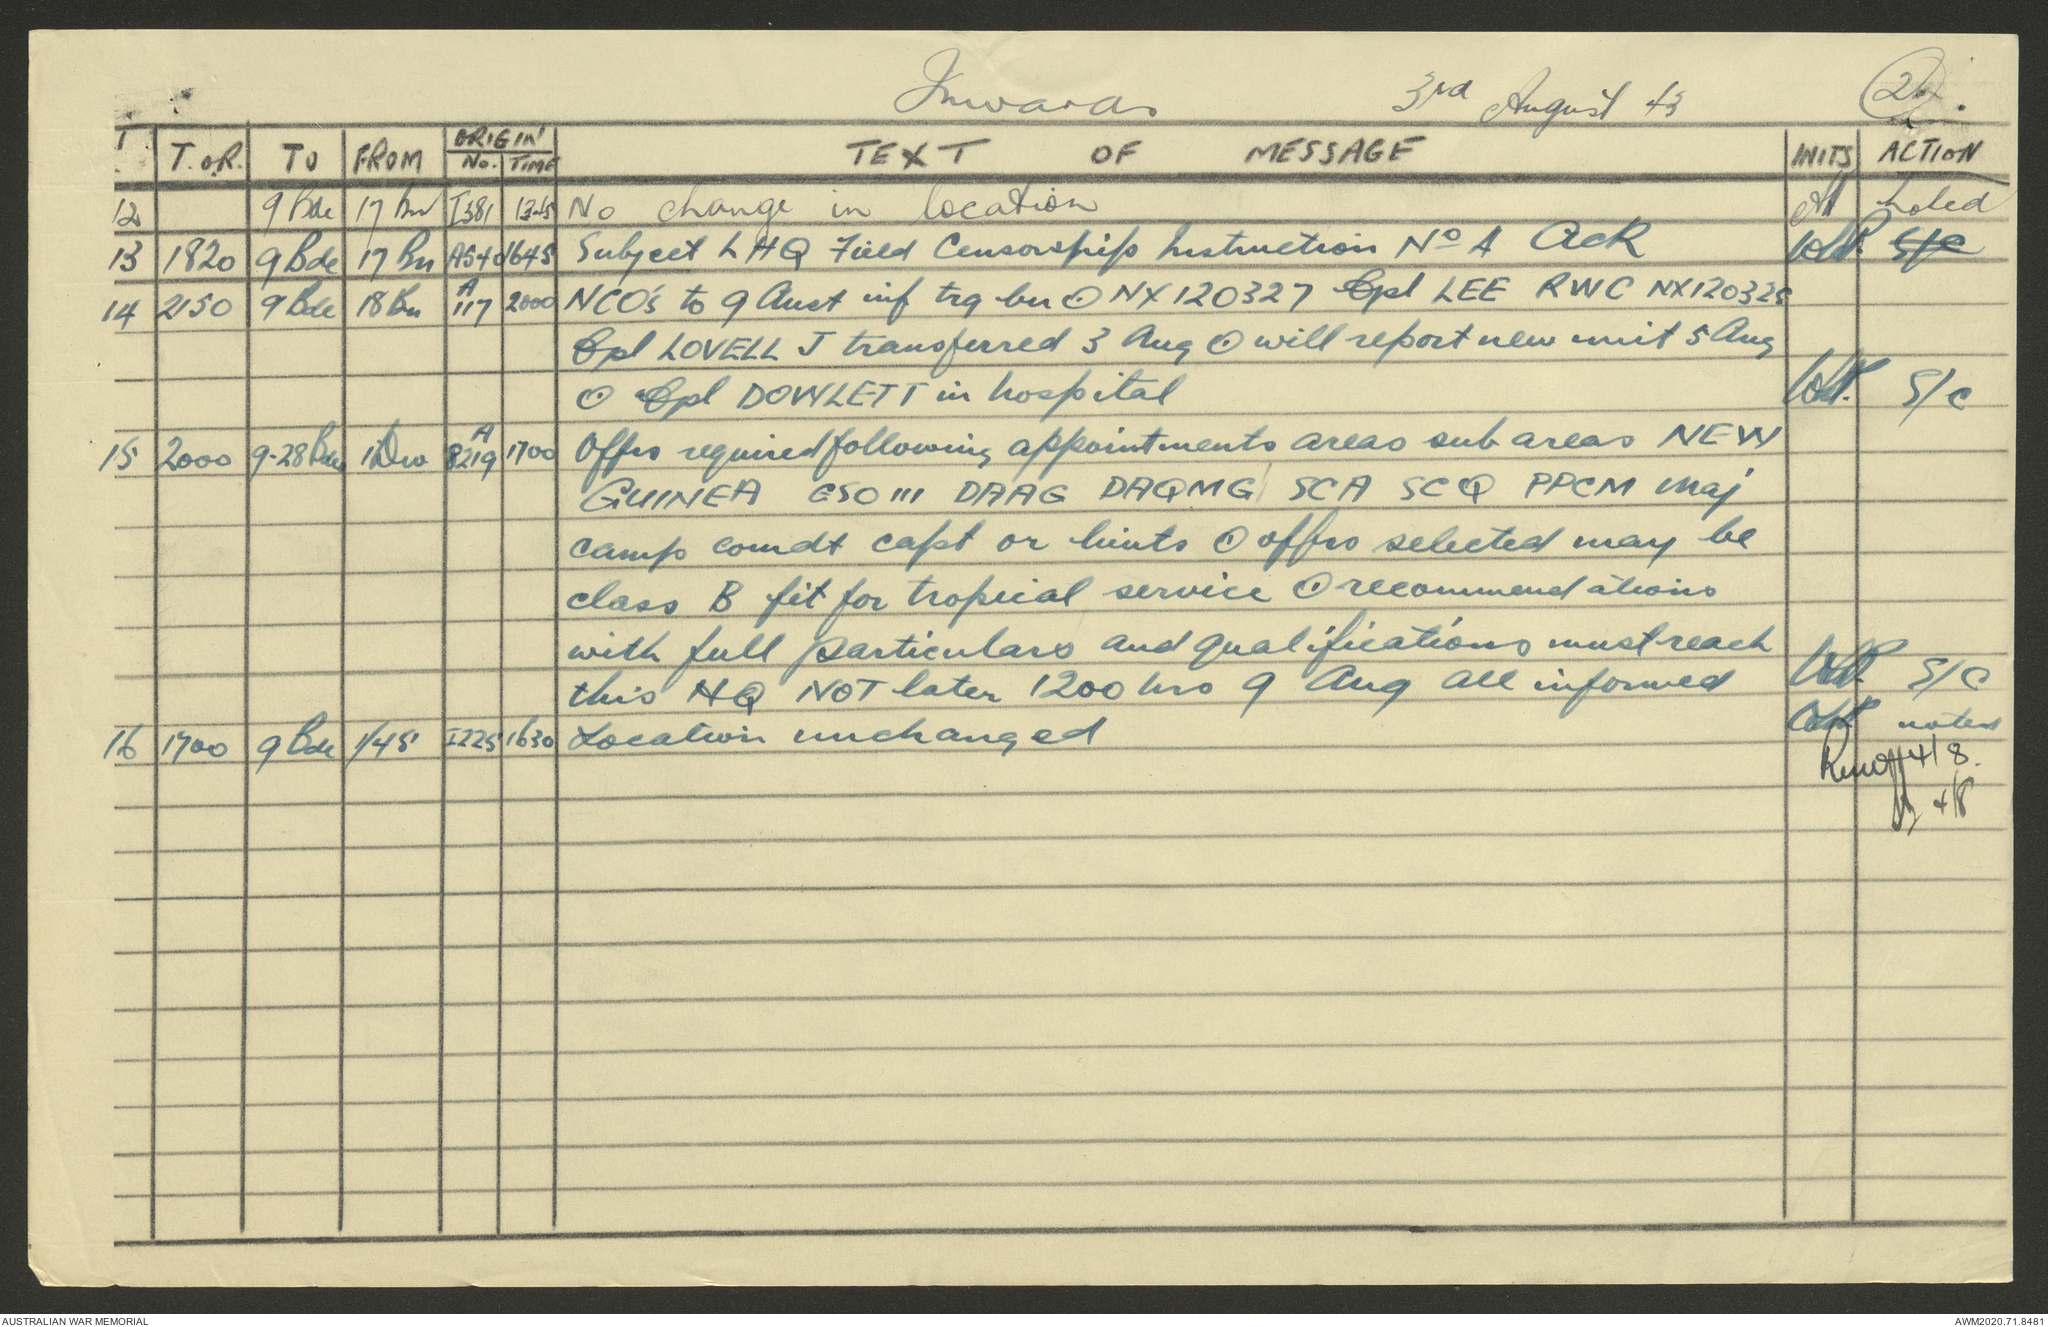 Inwards 3rd August 43 2
T.O.R. TO FROM ORIGIN No. TIME TEXT OF MESSAGE INITS ACTION
12 9 Bde 17 Bn I381 1345 No change in location noted
13 1820 9 Bde 17 Bn A540 1645 Subject LHQ Field Censorship Instruction No A Ack S/C
14 2150 9 Bde 18 Bn A 117 2000 NCO's to 9 Aust inf trg bn ⊙ NX120327 Cpl LEE RWC NX120328
Cpl LOVELL J transferred 3 Aug ⊙ will report new unit 5 Aug
⊙ Cpl DOWLETT in hospital S/C
15 2000 9-28 Bdes 1 Div A 8219 1700 Offrs required following appointments areas sub areas NEW
GUINEA GSO III DAAG DAQMG SCA SCQ PPCM maj
camp comdt capt or lieuts ⊙ offrs selected may be
class B fit for tropical service ⊙ recommendations
with full particulars and qualifications must reach
this HQ NOT later 1200 hrs 9 Aug all informed S/C
16 1700 9 Bde 1/45 I225 1630 Location unchanged noted
4/8.
4/8
AUSTRALIAN WAR MEMORIAL AWM2020.71.8481